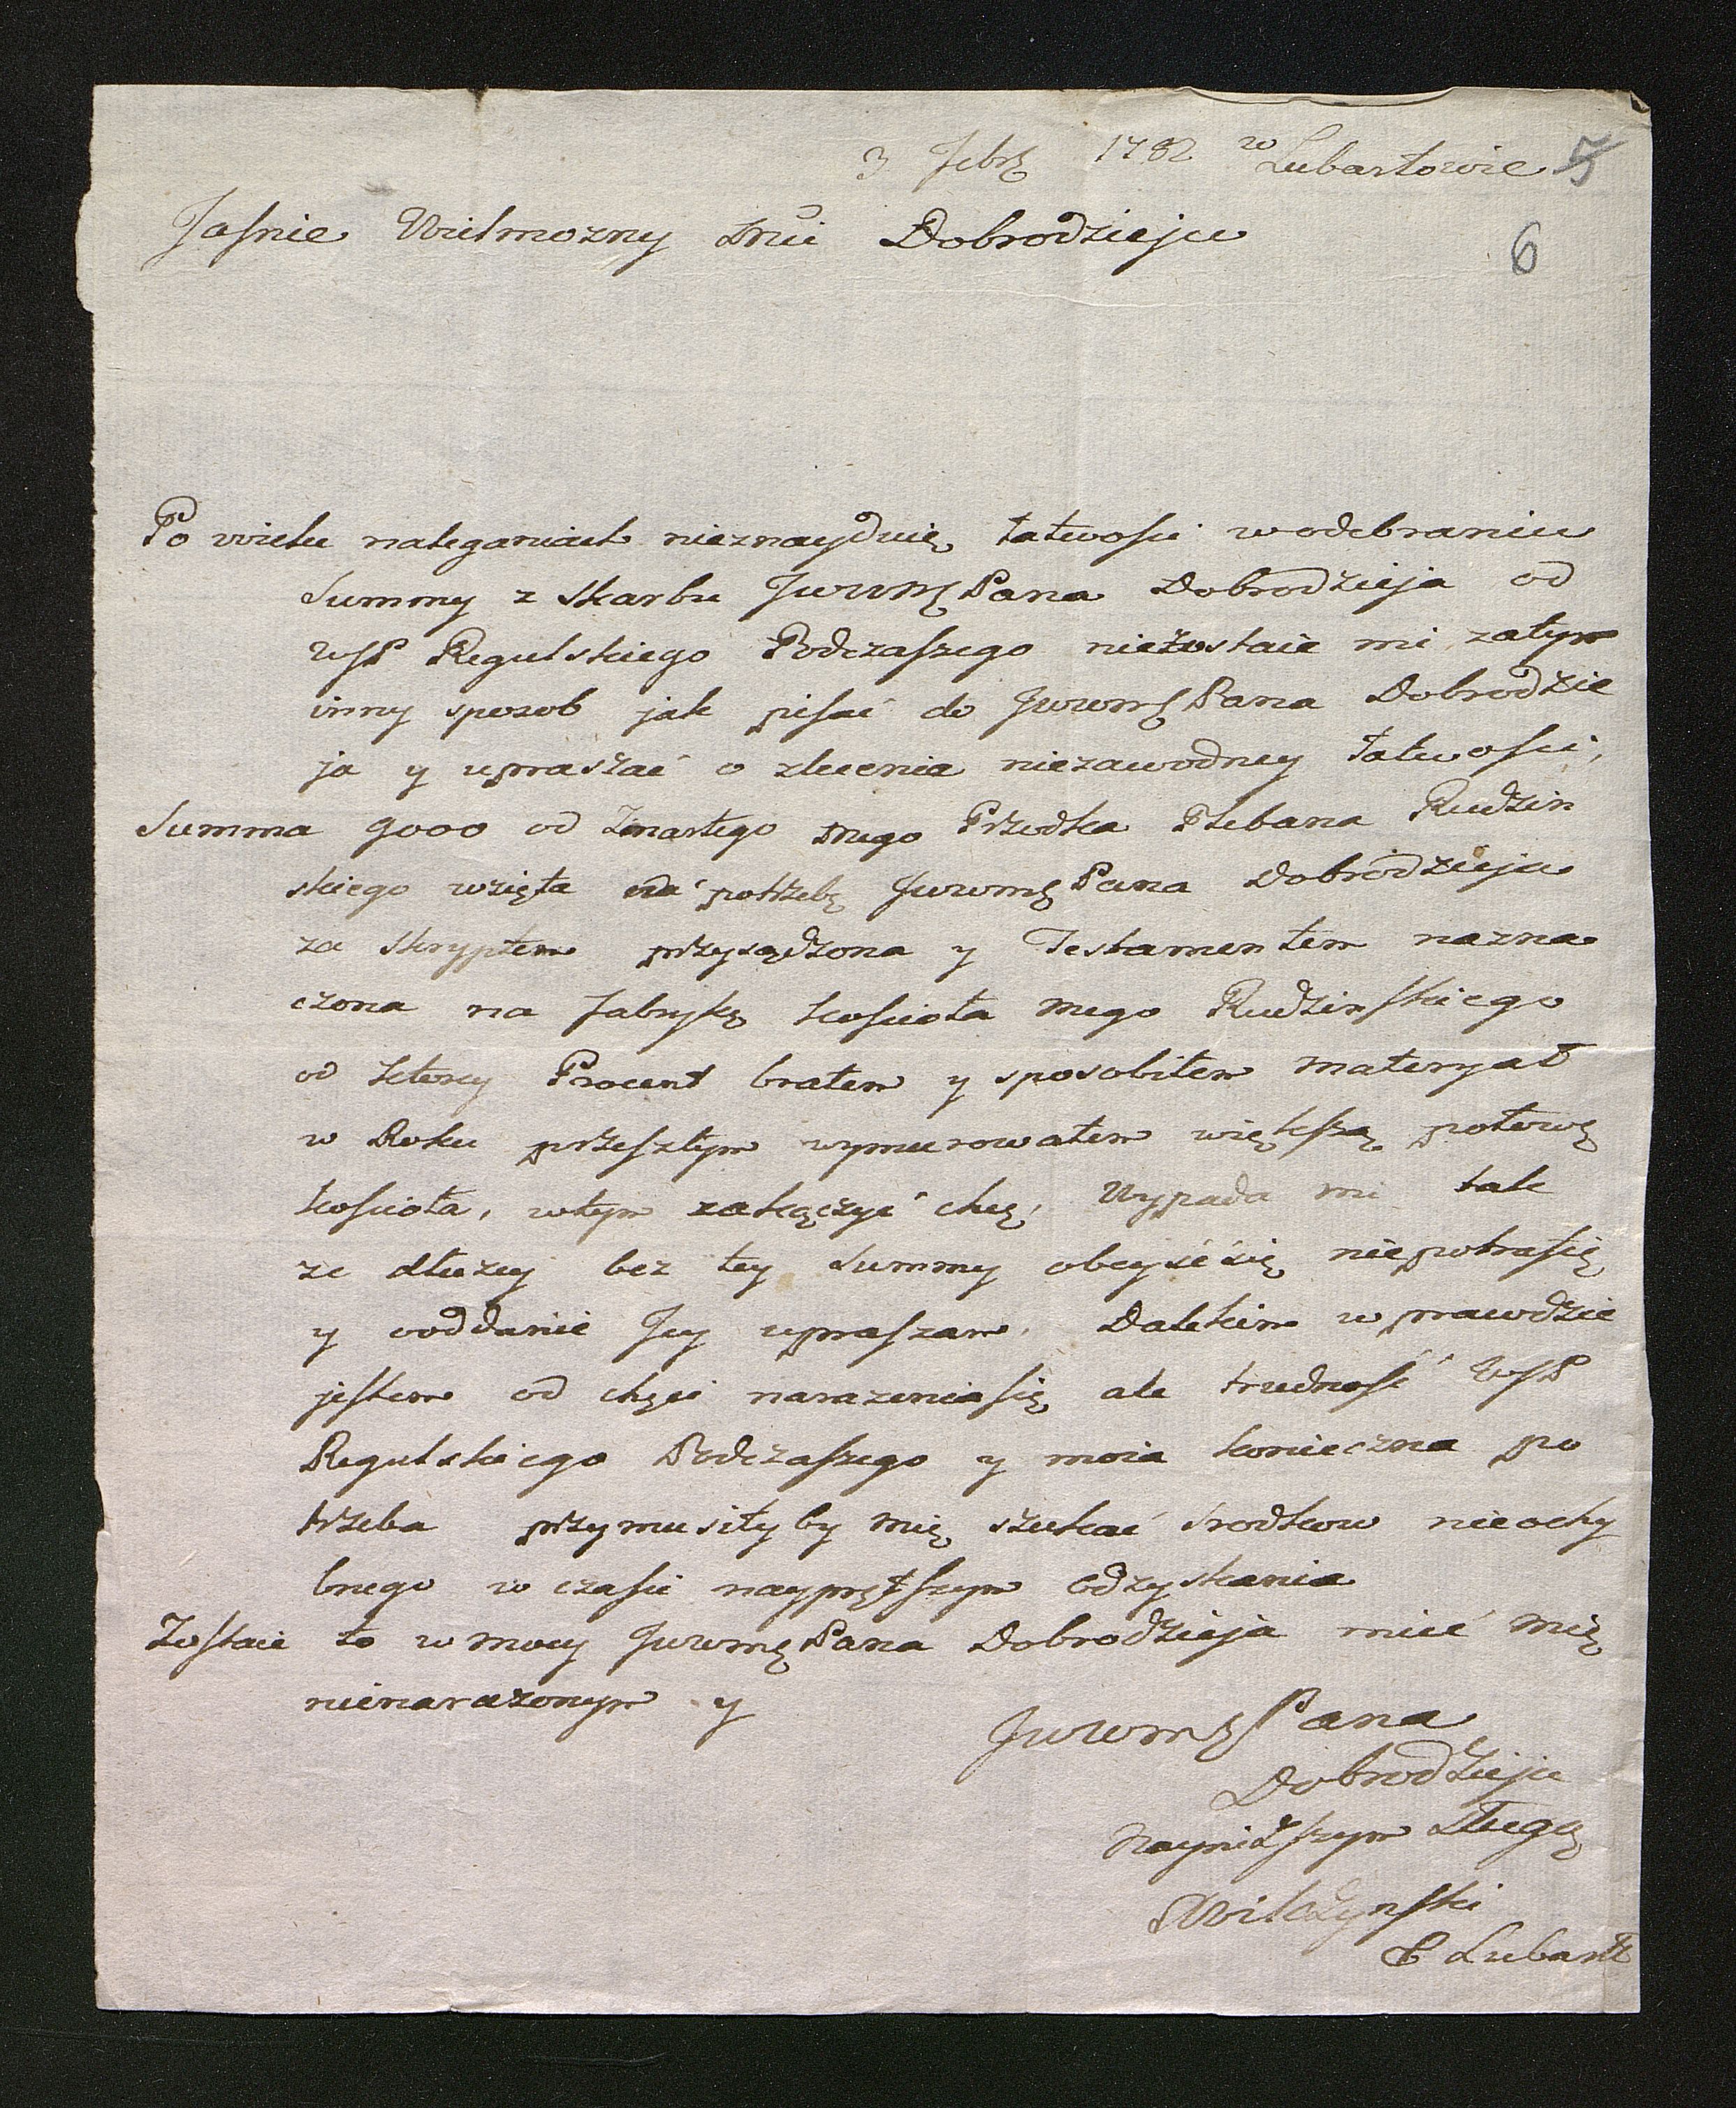 3 Febr 1782 w Lubartowie 5
Jaśnie Wielmozny Mći Dobrodzieju
6
Po wielu naleganiach nieznayduię łatwości w odebraniu
Summy z Skarbu JWWMę Pana Dobrodzieja od
WJP Regulskiego Podczaszego niezostaie mi zatym
inny sposob jak pisać do JWWMę Pana Dobrodzie
ja y upraszać o zlecenie niezawodney łatwości,
Summa 9000 od zmarłego mego Przodka Plebana Rudzin
skiego wzięta na potrzebę JWWMę Pana Dobrodzieja
za Skryptem przysądzona y Testamentem nazna
czona na fabrykę kościoła mego Rudzinskiego
od ktorey Procent brałem y sposobiłem materyał
w Roku przeszłym wymurowałem większą połowę
kościoła, w tym zakączyć chcę, Wypada mi tak
ze dłuzey bez tey Summy obeyść się niepotrafię
y o oddanie Jey upraszam. Dalekim w prawdzie
jestem od chęci narazenia się ale trudność WJP
Regulskiego Podczaszego y moia konieczna po
trzeba przymusiłyby mię szukać srodkow nieochy
bnego w czasie nayprętszym odzyskania
Zostaie to w mocy JWWMę Pana Dobrodzieja mieć mię
nienarazonym y
JWWMę Pana
Dobrodzieja
Nayniższym Sługą
Wilczynski
Lubart